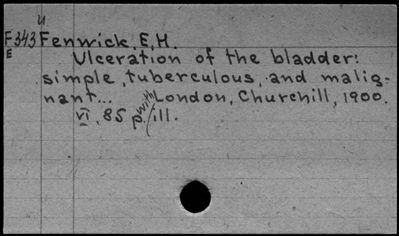 u
F343 Fenwick, E, H.
E
Ulceration of the bladder:
simple, tuberculous, and malig-
nant... London, Churchill, 1900.
VI, 85 p. with ill.